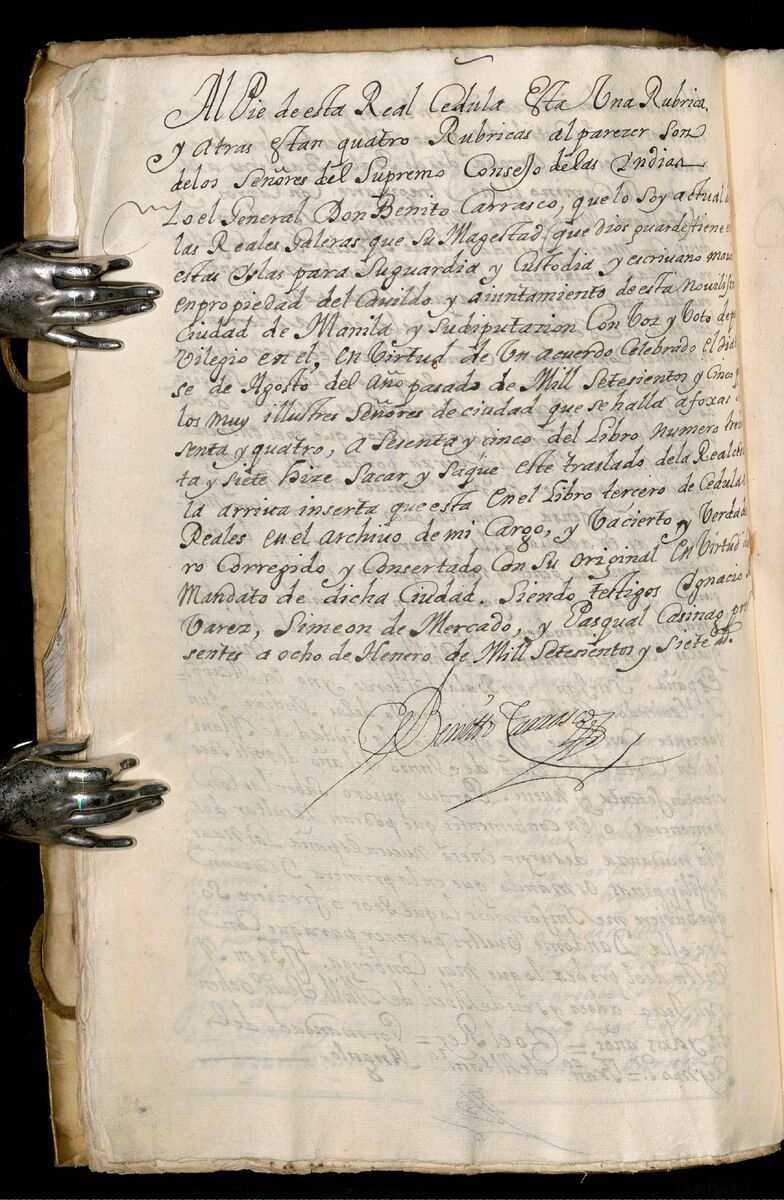 Al Pie de esta Real Cedula Esta Una Rubrica.
y atras estan quatro Rubricas al parezer son
delos Señores del Supremo Consejo delas Indias
Yo el General Don Benito Carrasco, que lo soy actual
las Reales Galeras que Su Magestad (que Dios guarde) tiene
estas Yslas para Su guardia y Custodia y escrivano
en propiedad del Cavildo y aiuntamiento de esta
Ciudad de Manila y Su diputazion Con Voz y Voto
vilegio en el, En Virtud de Un acuerdo Celebrado El
se de Agosto del Año pasado de Mill Setesientos y Cinco
los muy illustres Señores de ciudad que se halla a foxas
senta y quatro, a Sesenta y cinco del Libro Numero
ta y siete hize Sacar y Saqué este traslado de la Real
la arriva inserta que esta En el Libro tercero de Cedulas
Reales en el archivo de mi Cargo, y Va cierto, y Verdade
ro Corregido y Consertado Con Su Original En Virtud
Mandato de dicha Ciudad. Siendo testigos Ygnacio
Varez, Simeon de Mercado, y Pasqual Casinag
sentes a ocho de Henero de Mill Setesientos y Siete as.
Benito Carrasco